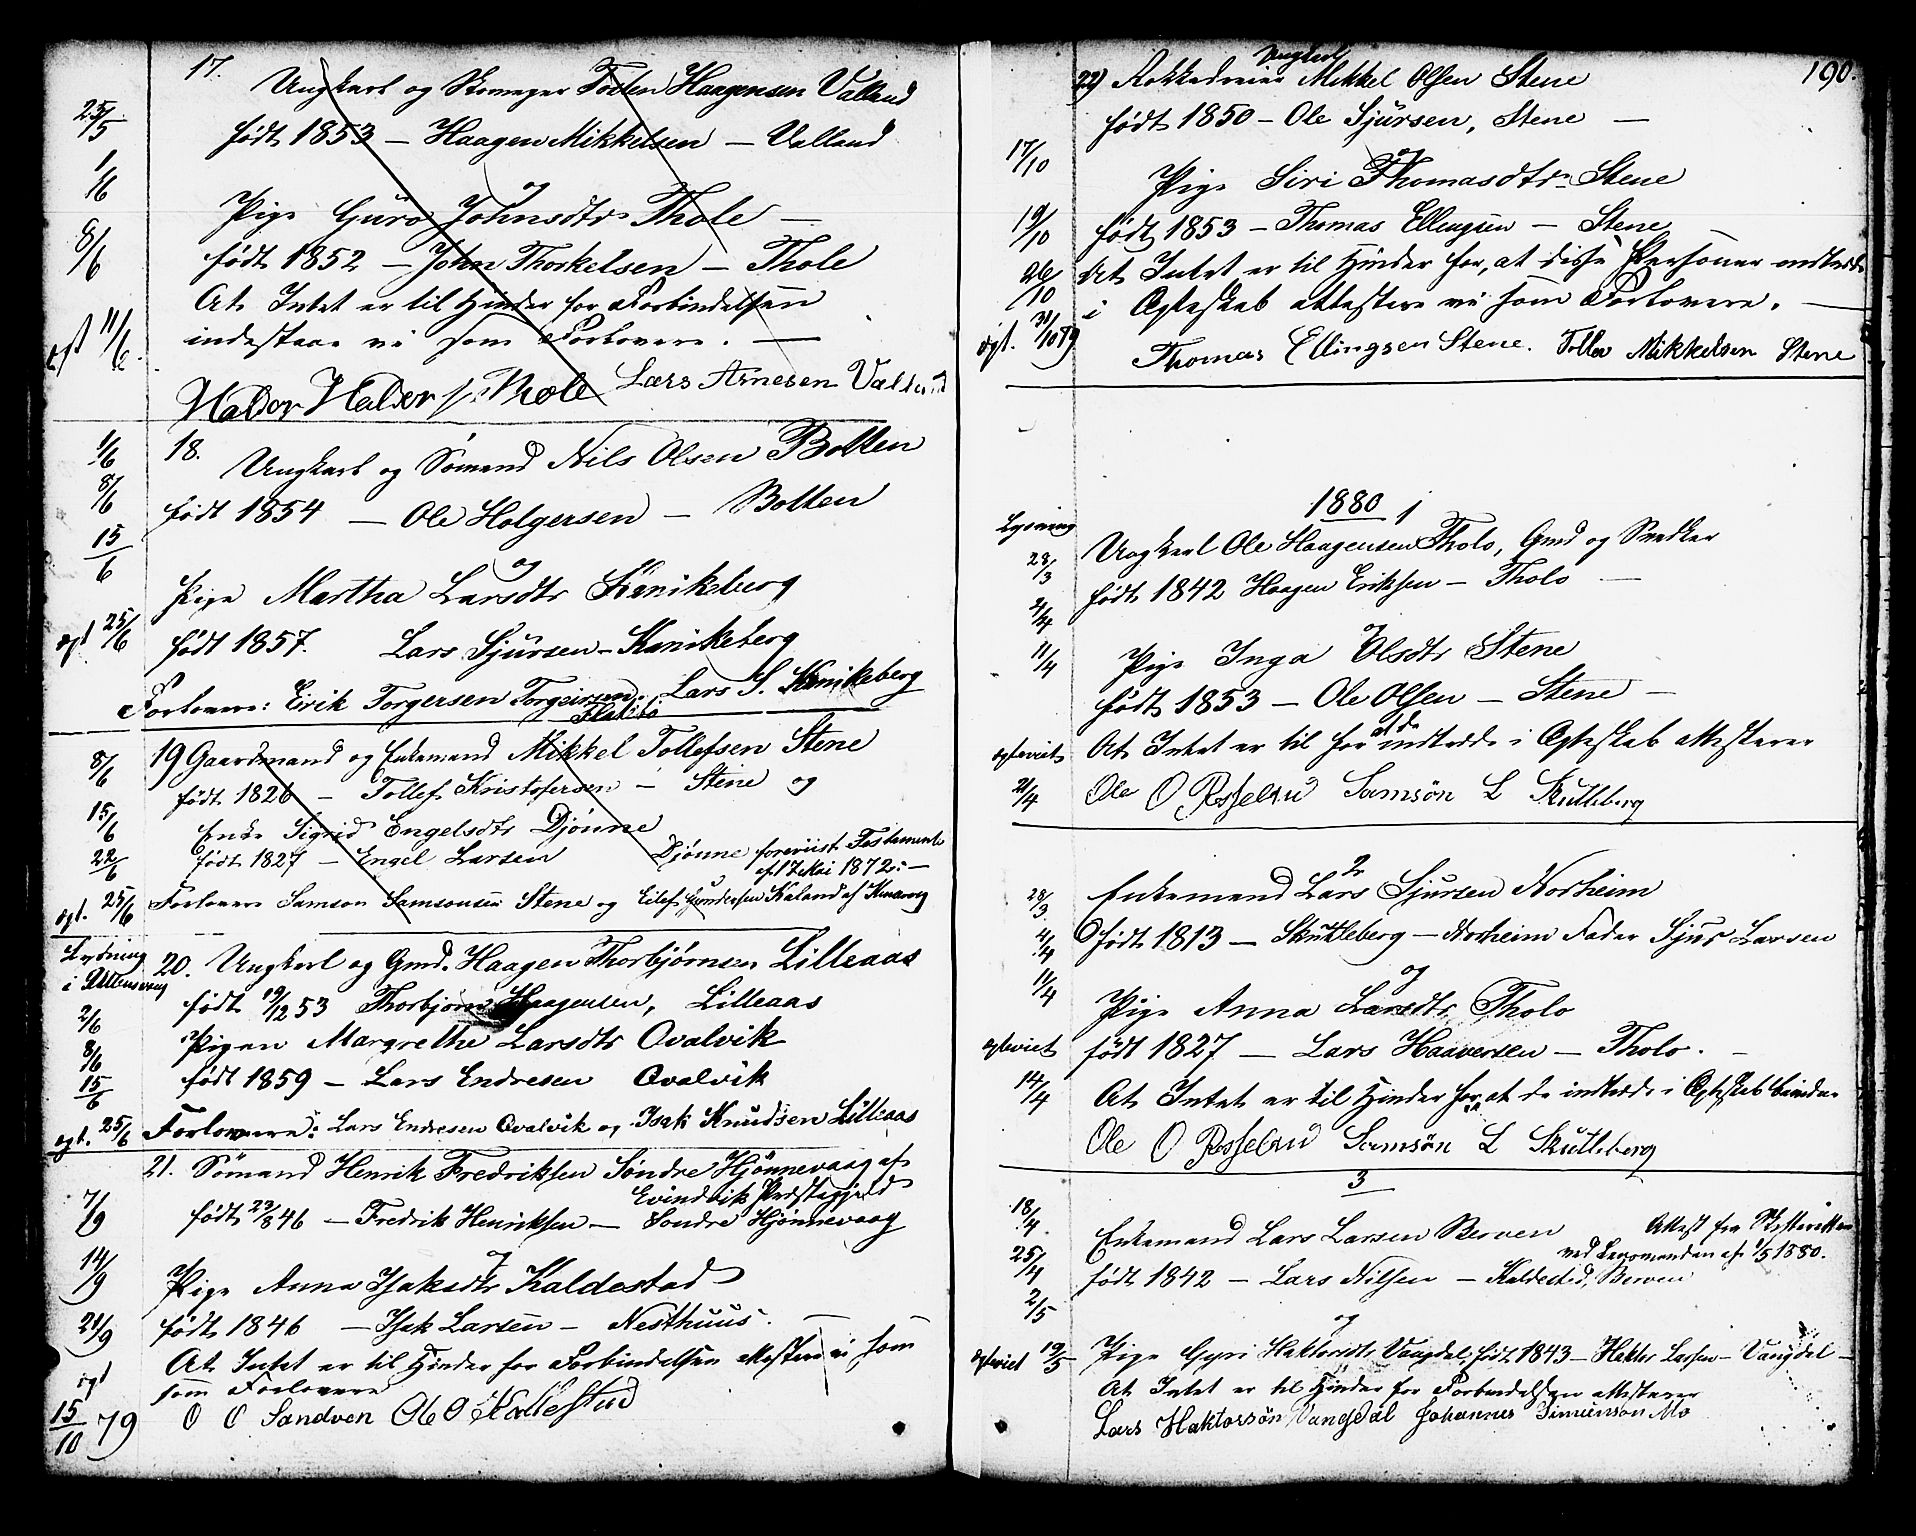 17.
Ungkarl og Skomager Tosten Haagensen Valland
25/5
født 1853 — Haagen Mikkelsen — Valland
1/6
og
Pige Guro Johnsdtr Thole —
8/6
født 1852 — John Thorkelsen — Thole
At Intet er til Hinder for Forbindelsen
indestaae vi som Forlovere. —
ægt 11/6.
Haldor Haldor s. Thole Lars Arnesen Valland
18.
1/6
Ungkarl og Sømand Nils Olsen Botten
8/6
født 1854 — Ole Holgersen — Botten
15/6
og
Pige Martha Larsdtr Kanikeberg
ægt 25/6
født 1857. Lars Sjursen — Kanikeberg
Forlovere: Eirik Torgersen Torgeirsen. Lars S. Kanikeberg
Flatebø
19 Gaardmand og Enkemand Mikkel Tollefsen Stene
8/6
født 1826 — Tollef Kristofersen — Stene og
15/6
Enke Sigrid Engelsdtr Djønne
22/6
født 1827 — Engel Larsen Djønne foreviist Testamente
af 17 Mai 1872. —
ægt. 25/6
Forlovere Samson Samsonsen Stene og Eilef Gundersen Kaland af Kinservig
Lysning
i Ullensvang
20. Ungkarl og Gmd. Haagen Thorbjørnsen Lilleaas
født 19/12 53 Thorbjørn Haagensen, Lilleaas
2/6
Pigen Margrethe Larsdtr Qvalvik
8/6
født 1859 — Lars Endresen Qvalvik
15/6
ægt. 25/6
Forlovere: Lars Endresen Qvalvik og Isak Knudsen Lilleaas
21. Sømand Henrik Fredriksen Søndre Hjønnevaag af
Evindvik Præstegjeld
7/9
født 23/8 46 — Fredrik Henriksen — Søndre Hjønnevaag
14/9
og
Pige Anna Isaksdtr Kaldestad
21/9
født 1846 — Isak Larsen — Nesthuus. —
At Intet er til Hinder for Forbindelsen attestere vi som
ægt
som Forlovere
15/10 79
O O Sandven Ole O Kallestad
190.
Ungkarl
22) Rokkedreier Mikkel Olsen Stene
født 1850 — Ole Sjursen, Stene —
17/10
og
Pige Siri Thomasdtr Stene
19/10
født 1853 — Thomas Ellingsen — Stene
26/10
At Intet er til Hinder for, at disse Personer indtræde
i Ægteskab attestere vi som Forlovere. —
ægt. 31/10 79
Thomas Ellingsen Stene. Tollev Mikkelsen Stene
1880 1
Lysning
Ungkarl Ole Haagensen Tholo, Gmd og Snedker
28/3
født 1842 Haagen Eriksen — Tholo —
4/4
og
11/4
Pige Inga Olsdtr Stene
født 1853 — Ole Olsen — Stene —
at de
ægteviet
At Intet er til for indtræde i Ægteskab attesterer
21/4
Ole O Rosselnd Samsøn L Skutleberg
2
28/3.
Enkemand Lars Sjursen Norheim
4/4
født 1813 — Skutleberg — Norheim Fader Sjur Larsen
11/4
og
Pige Anna Larsdtr Tholo
ægteviet
født 1827 — Lars Haaversen — Tholo. —
14/4
At Intet er til Hinder for, at de indtræde i Ægteskab bevidne
Ole O Rosselnd Samsøn L Skutleberg
3
18/4.
Enkemand Lars Larsen Berven Attest fra Skifteretten
25/4
ved Lensmanden af 1/5 1880.
født 1842 — Lars Nilsen — Kaldestad, Berven
2/5
og
ægteviet 19/5
Pige Gyri Haktorsdtr Vangdal, født 1843 — Haktor Larsen — Vangdal —
At Intet er til Hinder for Forbindelsen attesterer
Lars Haktorsøn Vangdal Johannes Simunson Mo